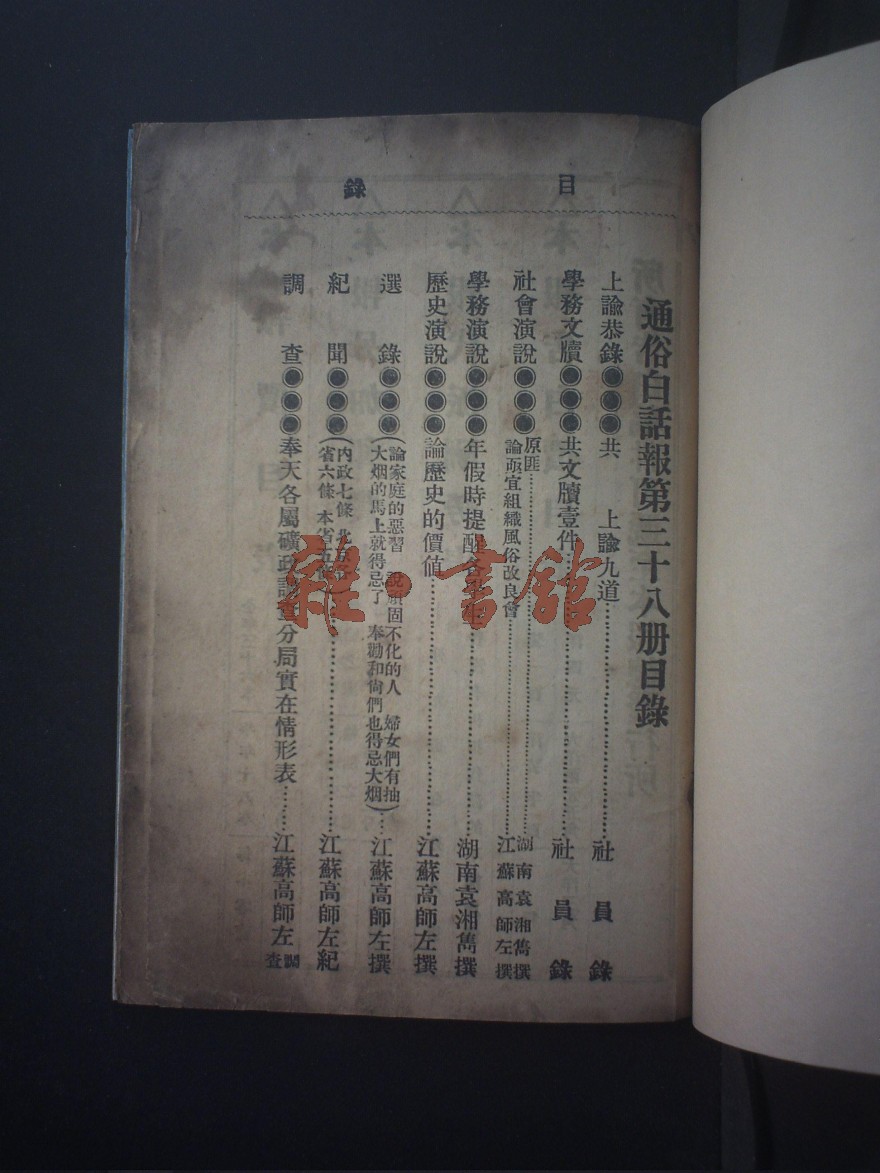 目錄
通俗白話報第三十八册目錄
上諭恭錄◉◉◉共 上諭九道……社員錄
學務文牘◉◉◉共文牘壹件……社員錄
社會演說◉◉◉原匪……湖南袁湘雋撰
論亟宜組織風俗改良會……江蘇高師左撰
學務演說◉◉◉年假時提醒……湖南袁湘雋撰
歷史演說◉◉◉論歷史的價值……江蘇高師左撰
選錄◉◉◉(論家庭的惡習 說頑固不化的人 婦女們有抽
大烟的馬上就得忌了 奉勸和尙們也得忌大烟)……江蘇高師左撰
紀聞◉◉◉(內政七條 北
省六條 本省五)……江蘇高師左紀
調查◉◉◉奉天各屬礦政調查分局實在情形表……江蘇高師左調查
雜·書館